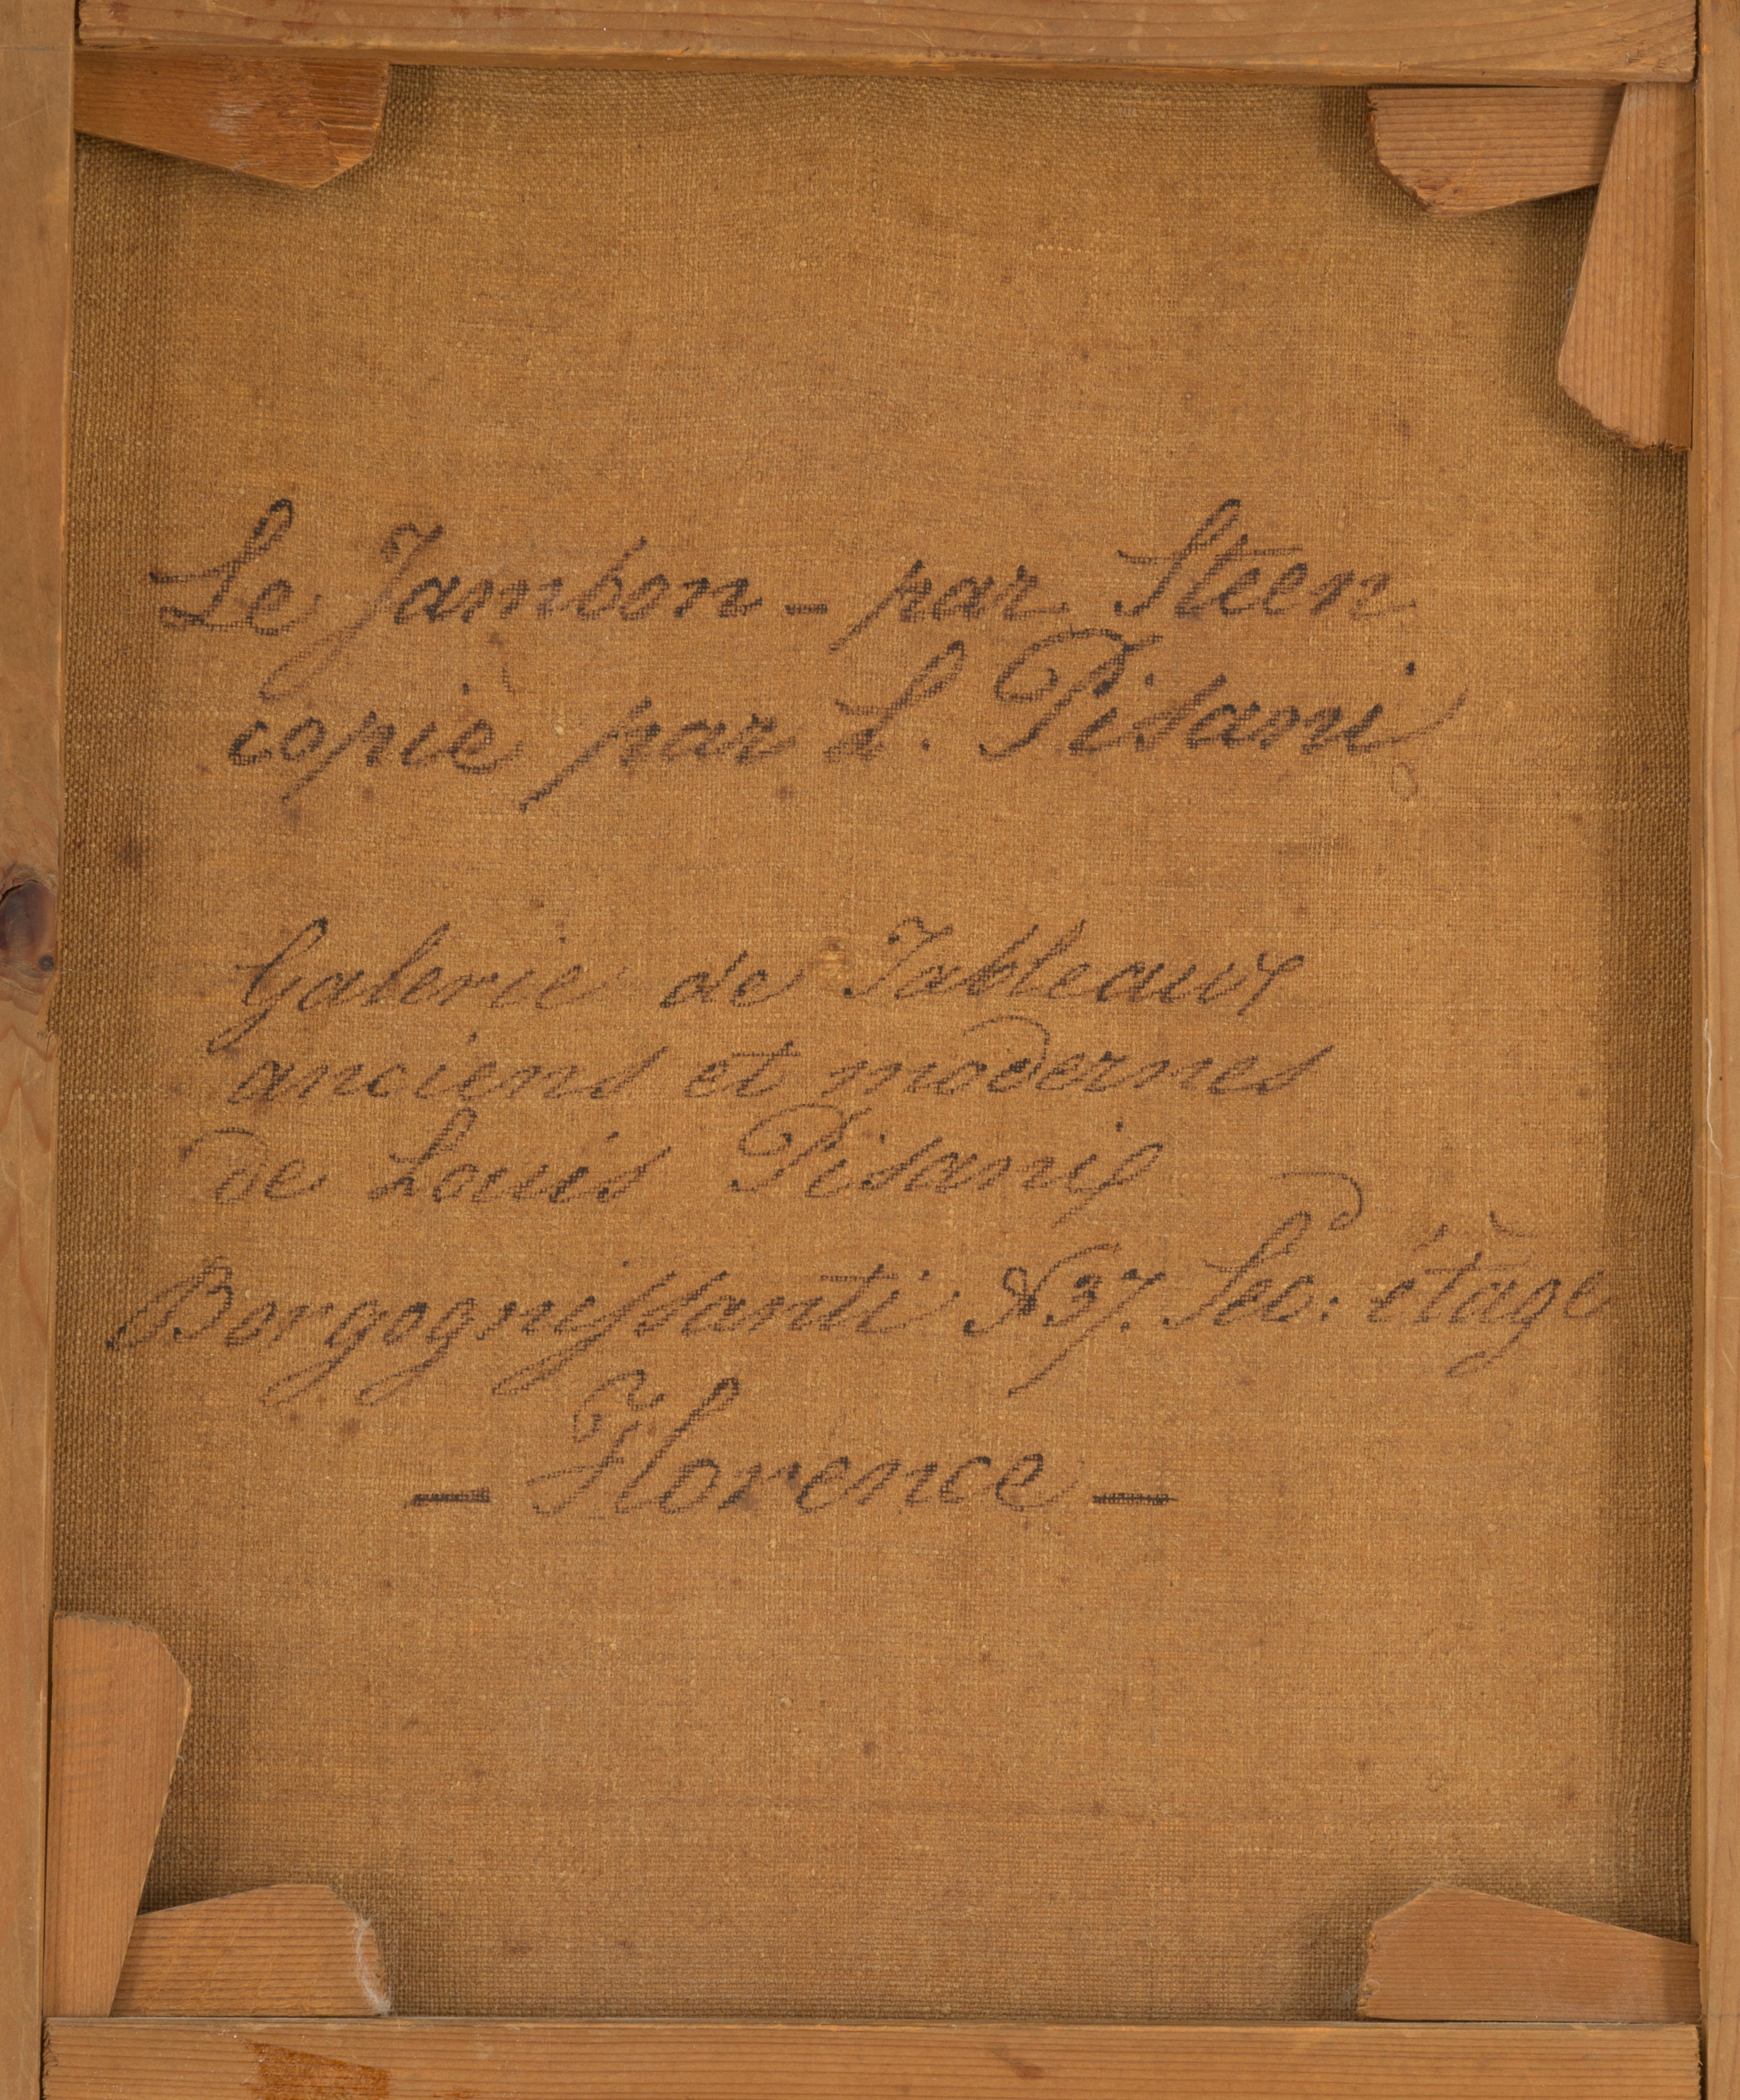 Le Jambon - par Steen
copie par L. Pisani
Galerie de Tableaux
anciens et modernes
de Louis Pisani
Borgognissanti N 37. Sec: étage
- Florence -